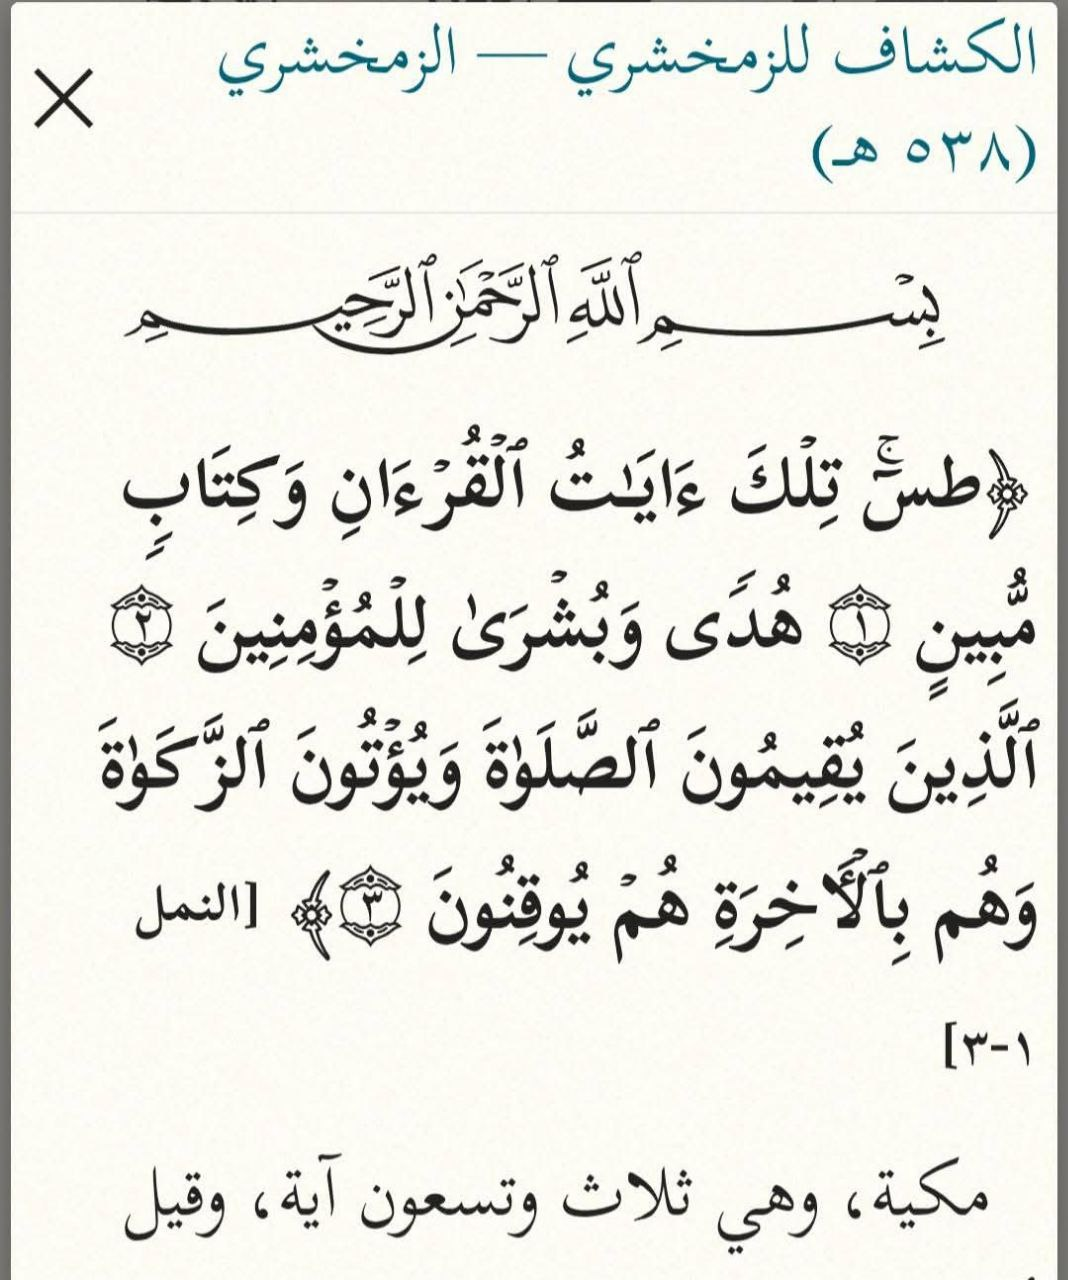 الكشاف للزمخشري — الزمخشري
(٥٣٨ هـ)
بِسْمِ ٱللَّهِ ٱلرَّحْمَٰنِ ٱلرَّحِيمِ
﴿طسٓۚ تِلْكَ ءَايَـٰتُ ٱلْقُرْءَانِ وَكِتَابٍ
مُّبِينٍ ١ هُدًى وَبُشْرَىٰ لِلْمُؤْمِنِينَ ٢
ٱلَّذِينَ يُقِيمُونَ ٱلصَّلَوٰةَ وَيُؤْتُونَ ٱلزَّكَوٰةَ
وَهُم بِٱلْـَٔاخِرَةِ هُمْ يُوقِنُونَ ٣﴾ [النمل
١-٣]
مكية، وهي ثلاث وتسعون آية، وقيل